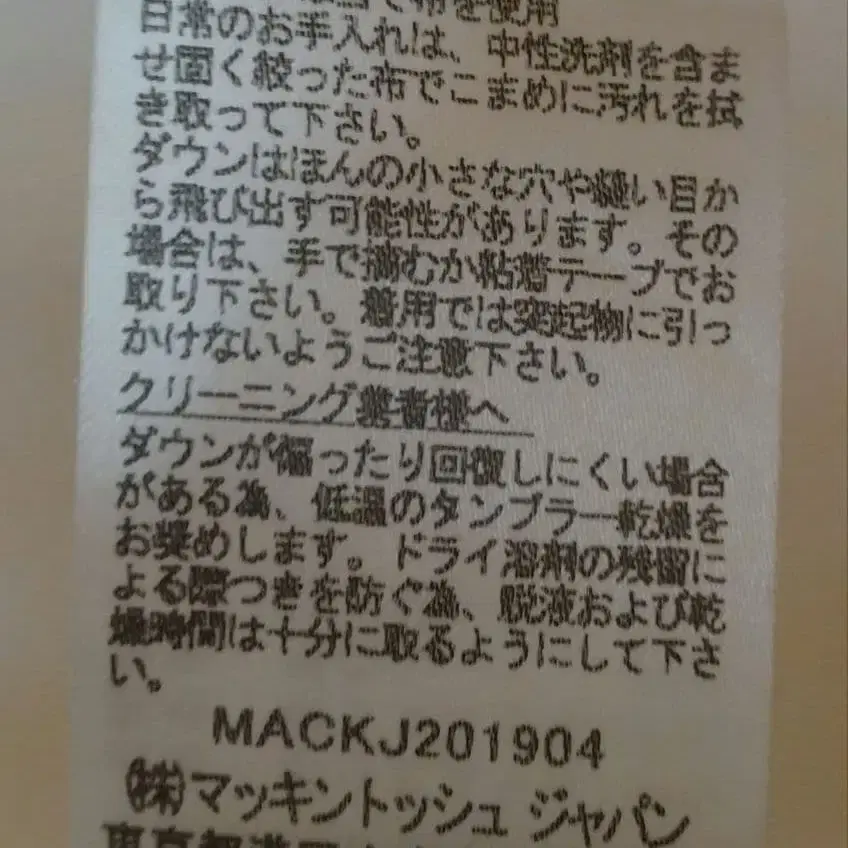 で布を使用
日常のお手入れは、中性洗剤を含ま
せ固く絞った布でこまめに汚れを拭
き取って下さい。
ダウンはほんの小さな穴や縫い目か
ら飛び出す可能性があります。その
場合は、手で摘むか粘着テープでお
取り下さい。着用では突起物に引っ
かけないようご注意下さい。
クリーニング業者様へ
ダウンが偏ったり回復しにくい場合
がある為、低温のタンブラー乾燥を
お奨めします。ドライ溶剤の残留に
よる際つきを防ぐ為、脱液および乾
燥時間は十分に取るようにして下さ
い。
MACKJ201904
(株)マッキントッシュ ジャパン
東京都港区